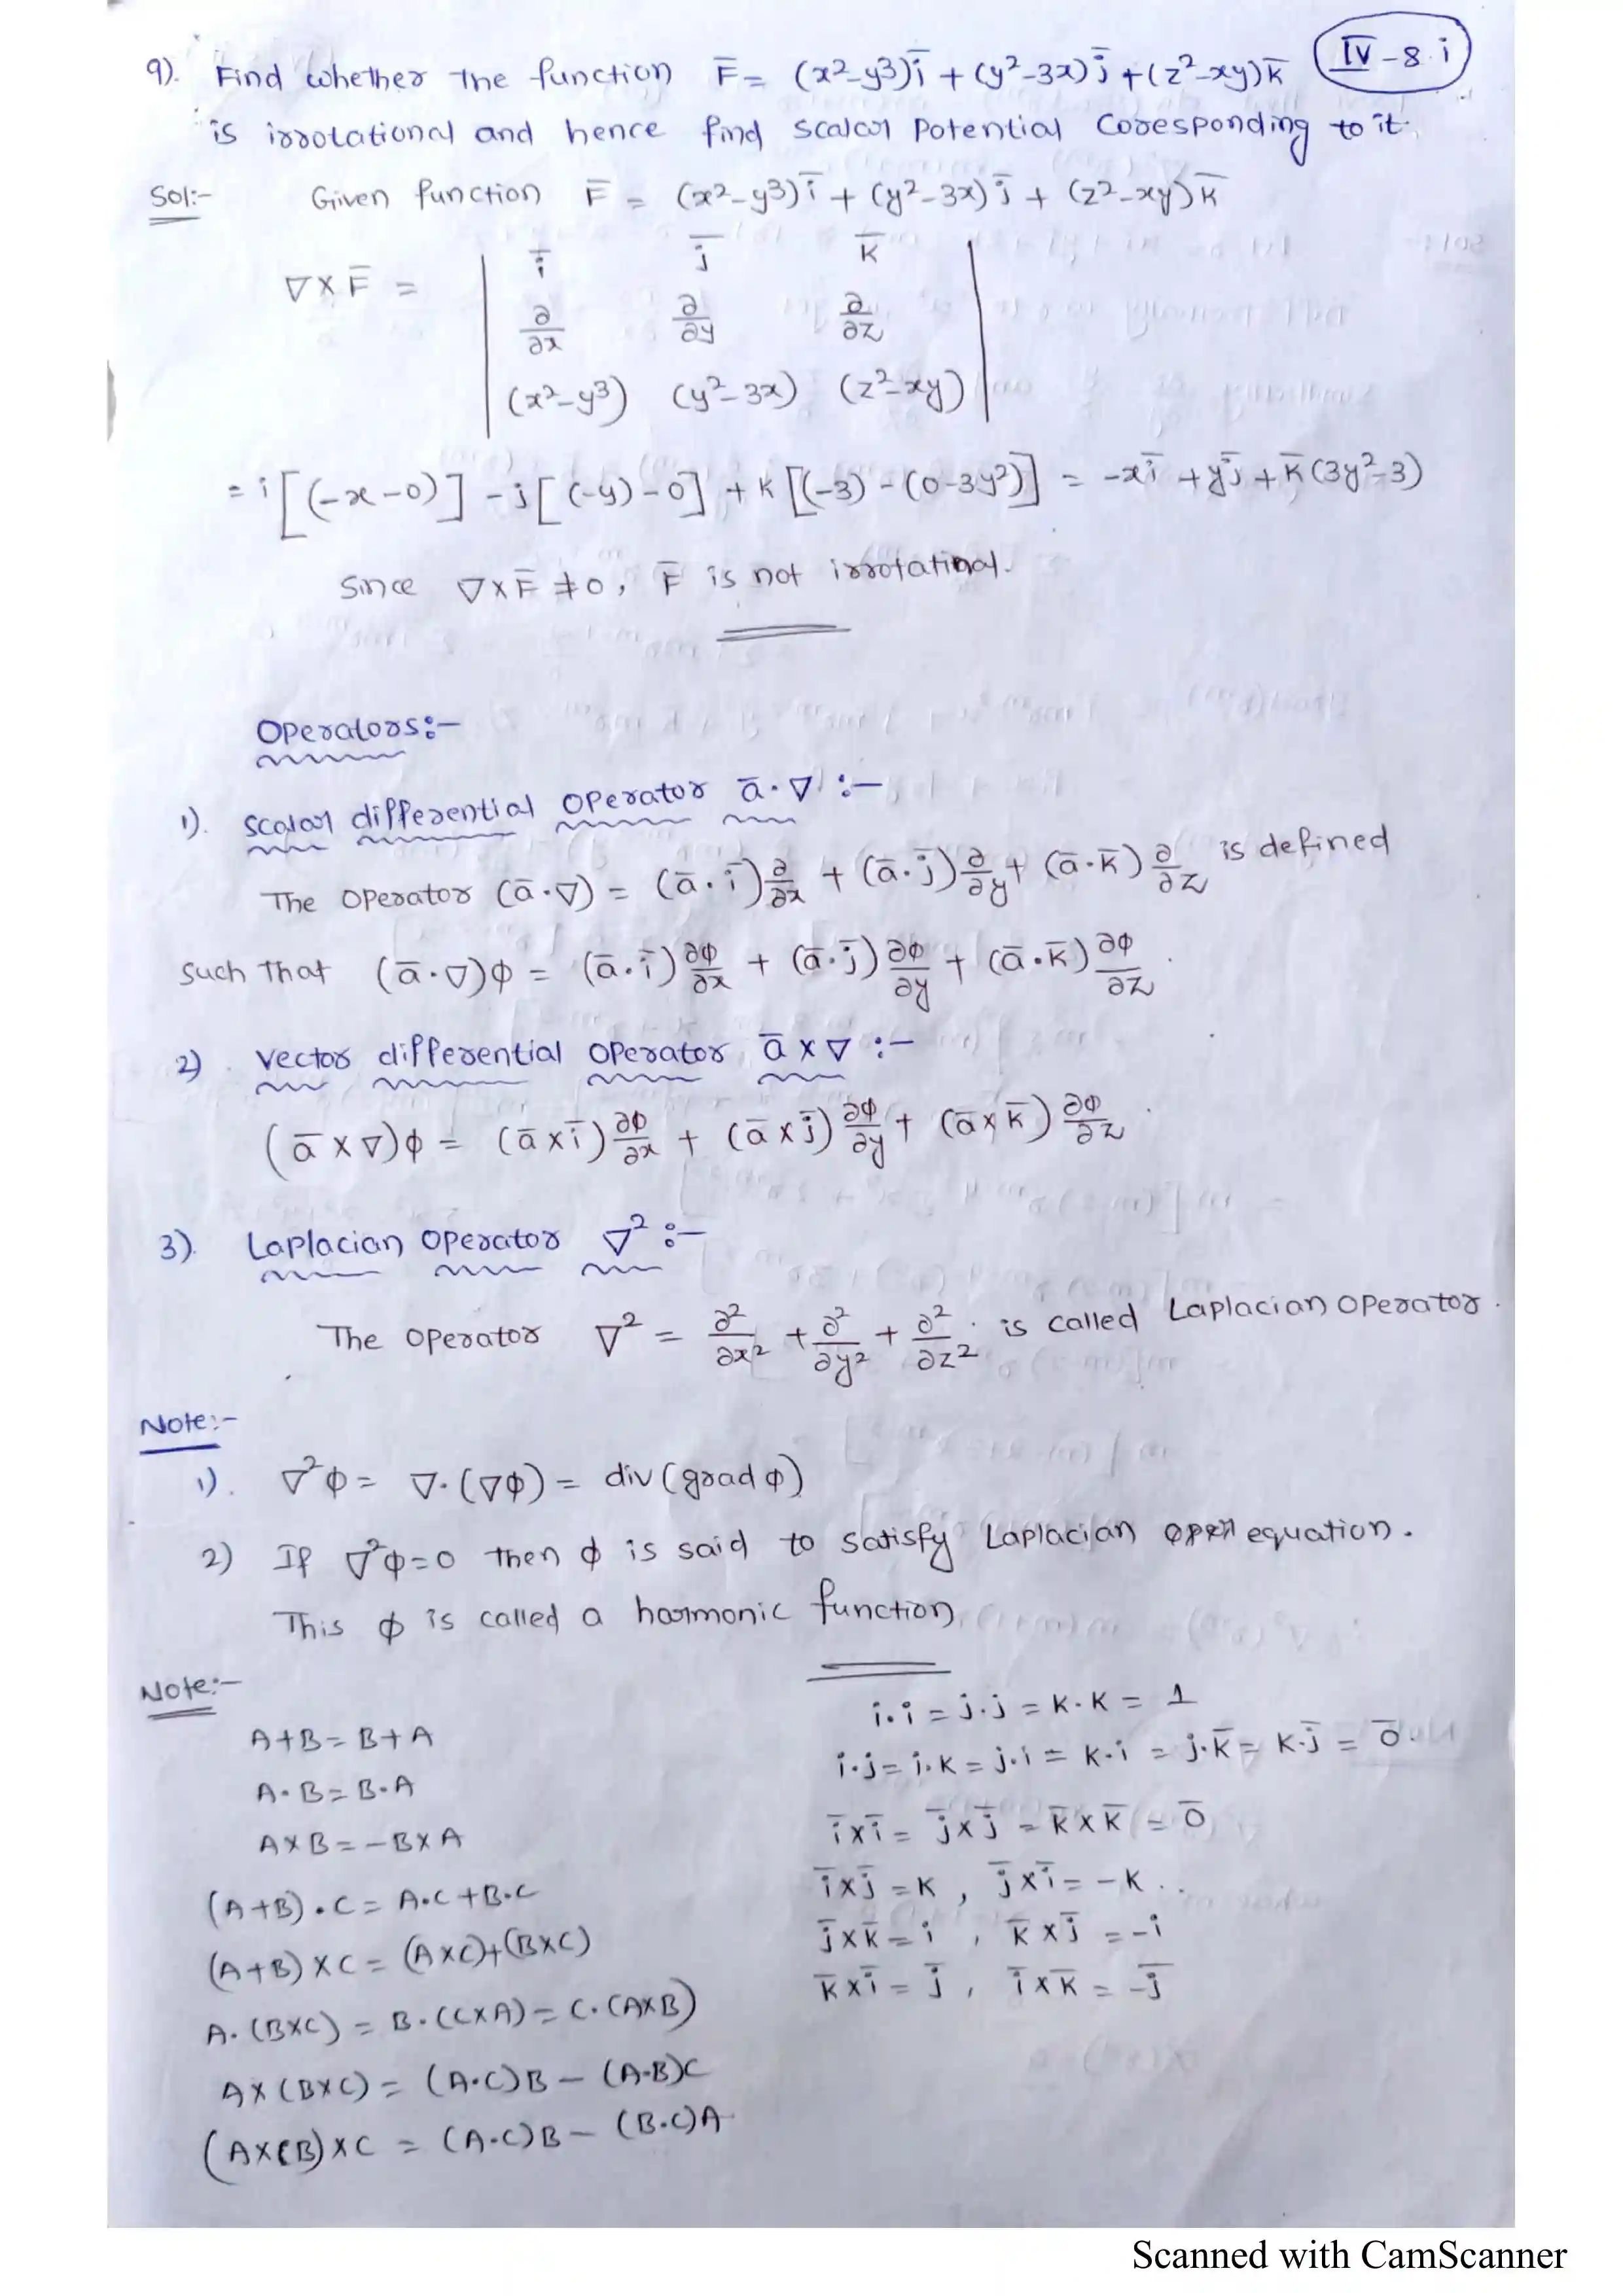 9). Find whether the function F̄ = (x²-y³)ī + (y²-3x)j̄ + (z²-xy)k̄ IV-8.i
is irrotational and hence find scalar potential coresponding to it.
Sol:- Given function F̄ = (x²-y³)ī + (y²-3x)j̄ + (z²-xy)k̄
∇×F̄ = | ī j̄ k̄ |
| ∂/∂x ∂/∂y ∂/∂z |
| (x²-y³) (y²-3x) (z²-xy) |
= i[(-x-0)] - j[(-y)-0] + k[(-3)-(0-3y²)] = -xī + yj̄ + k̄(3y²-3)
Since ∇×F̄ ≠ 0, F̄ is not irrotatinal.
Operators:-
1). scalar differential operator ā·∇ :-
The operator (ā·∇) = (ā·ī)∂/∂x + (ā·j̄)∂/∂y + (ā·k̄)∂/∂z is defined
such that (ā·∇)ϕ = (ā·ī)∂ϕ/∂x + (ā·j̄)∂ϕ/∂y + (ā·k̄)∂ϕ/∂z.
2) vector differential operator ā×∇ :-
(ā×∇)ϕ = (ā×ī)∂ϕ/∂x + (ā×j̄)∂ϕ/∂y + (ā×k̄)∂ϕ/∂z.
3). Laplacian operator ∇² :-
The operator ∇² = ∂²/∂x² + ∂²/∂y² + ∂²/∂z². is called Laplacian operator.
Note:-
1). ∇²ϕ = ∇·(∇ϕ) = div(grad ϕ)
2) If ∇²ϕ=0 then ϕ is said to satisfy Laplacian equation.
This ϕ is called a harmonic function.
Note:-
A+B = B+A
A·B = B·A
A×B = -B×A
(A+B)·C = A·C+B·C
(A+B)×C = (A×C)+(B×C)
A·(B×C) = B·(C×A) = C·(A×B)
A×(B×C) = (A·C)B - (A·B)C
(A×(B)×C = (A·C)B - (B·C)A
i·i = j·j = k·k = 1
i·j = i·k = j·i = k·i = j·k̄ = k·j̄ = 0̄
ī×ī = j̄×j̄ = k̄×k̄ = 0̄
ī×j̄ = k, j̄×ī = -k..
j̄×k̄ = i, k̄×j̄ = -i
k̄×ī = j̄, ī×k̄ = -j̄
Scanned with CamScanner